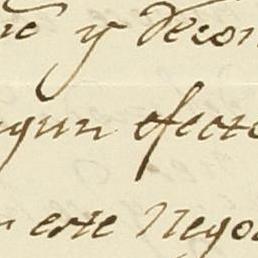 y Decon
gun efecto
este Nego